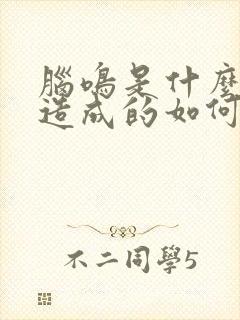 腦鳴是什麼
造成的如何
不二同學5